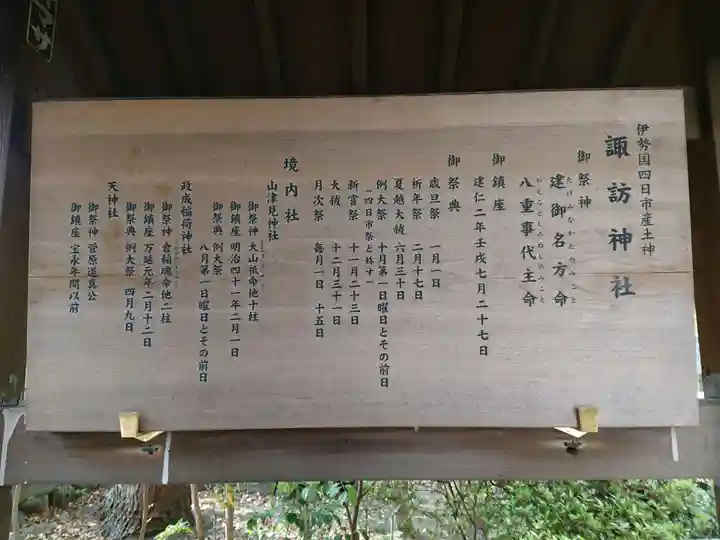 伊勢国四日市産土神
諏訪神社
御祭神
建御名方命
たけみなかたのみこと
八重事代主命
やえことしろぬしのみこと
御鎮座
建仁二年壬戌七月二十七日
御祭典
歳旦祭 一月一日
祈年祭 二月十七日
夏越大祓 六月三十日
例大祭 十月第一日曜日とその前日
(四日市祭と称す)
新嘗祭 十一月二十三日
大祓 十二月三十一日
月次祭 毎月一日 十五日
境内社
山津見神社
御祭神 大山祗命他十柱
御鎮座 明治四十一年二月一日
御祭典 例大祭
八月第一日曜日とその前日
政成稲荷神社
御祭神 倉稲魂命他二柱
御鎮座 万延元年二月十二日
御祭典 例大祭 四月九日
天神社
御祭神 菅原道真公
御鎮座 宝永年間以前